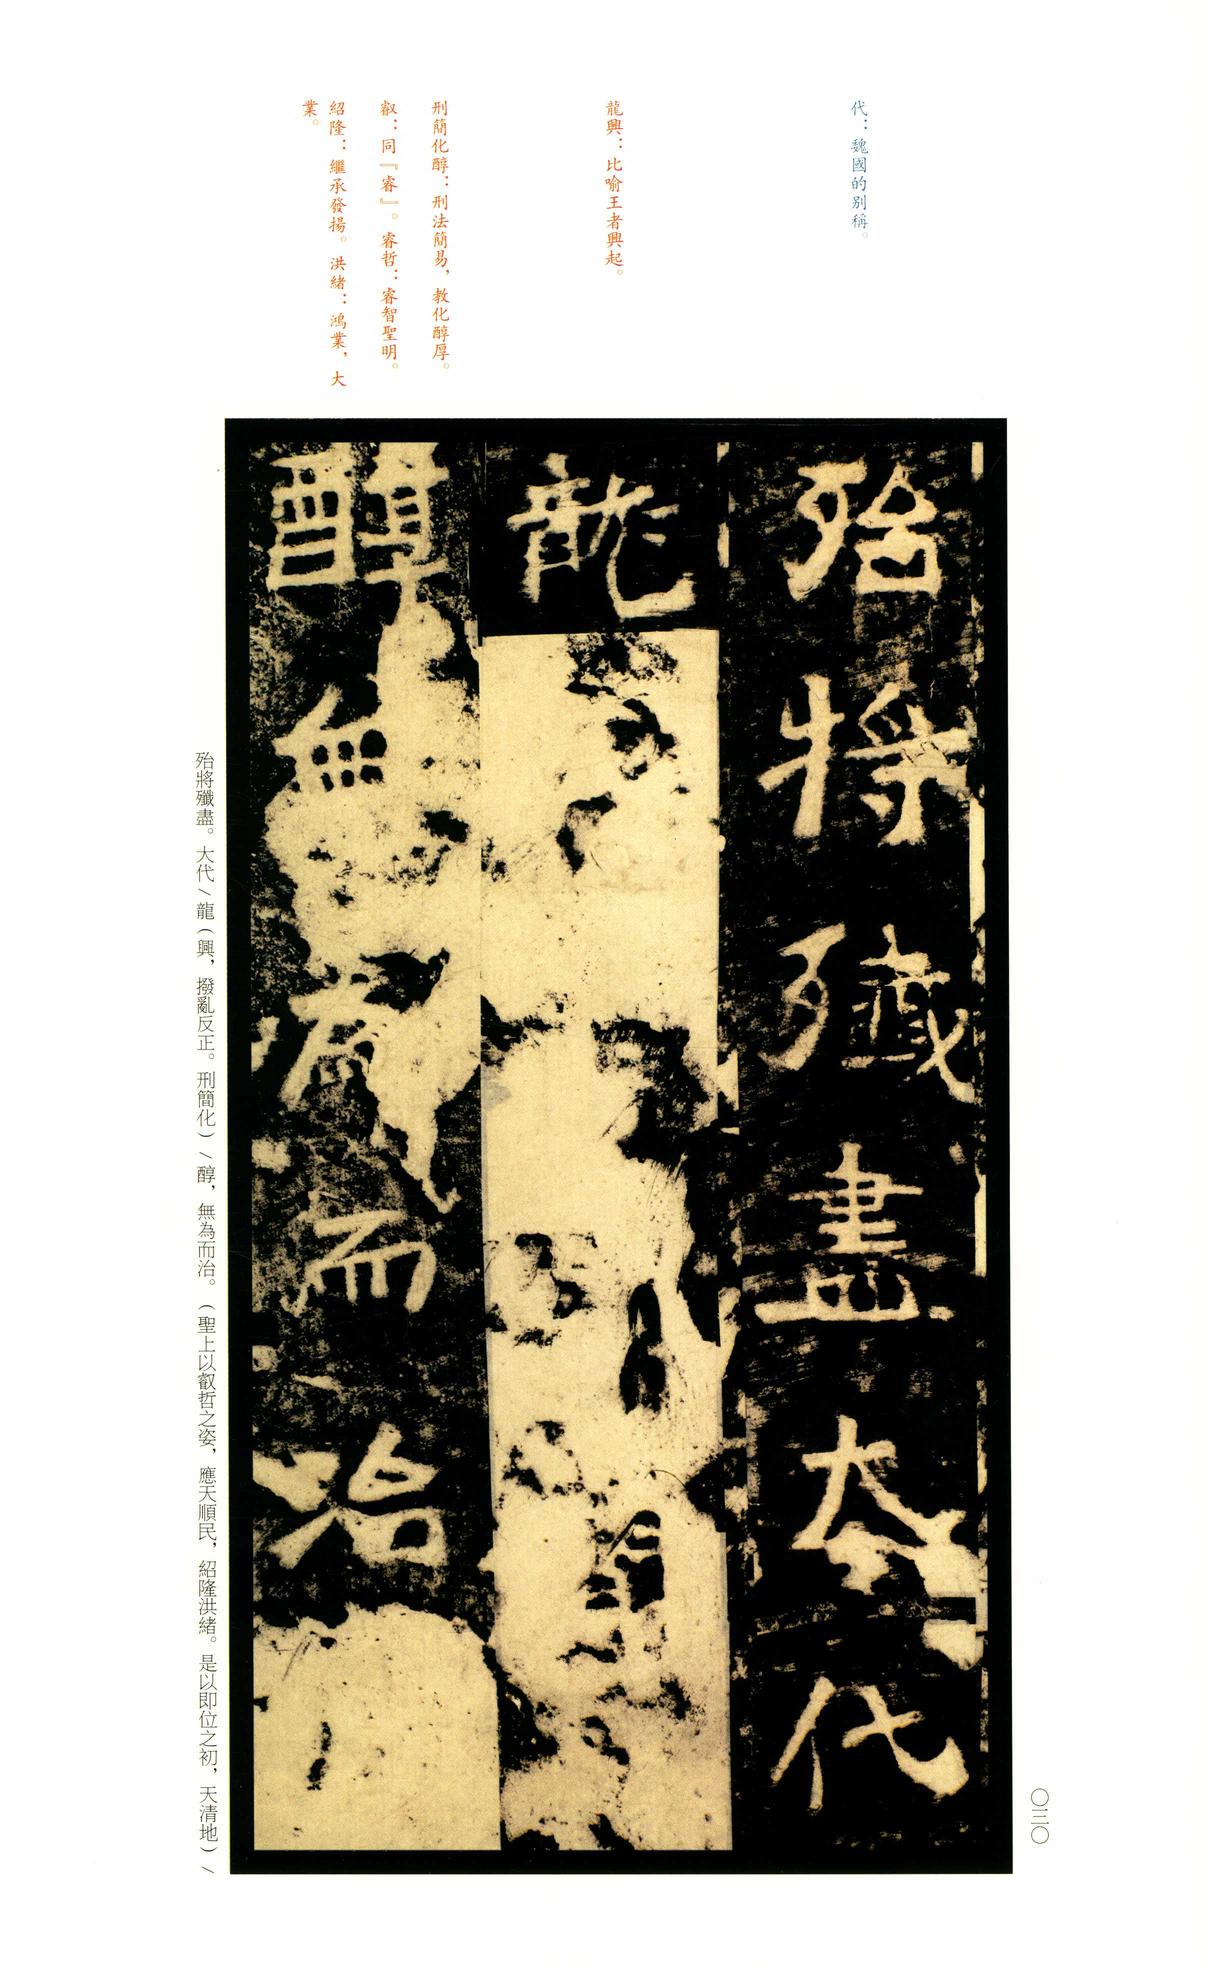 代：魏國的別稱。
龍興：比喻王者興起。
刑簡化醇：刑法簡易，教化醇厚。
叡：同『睿』。睿哲：睿智聖明。
紹隆：繼承發揚。洪緒：鴻業，大
業。
殆將殲盡大代
龍
醇無為而治
殆將殲盡。大代／龍（興，撥亂反正。刑簡化）／醇，無為而治。（聖上以叡哲之姿，應天順民，紹隆洪緒。是以即位之初，天清地）／
〇三〇